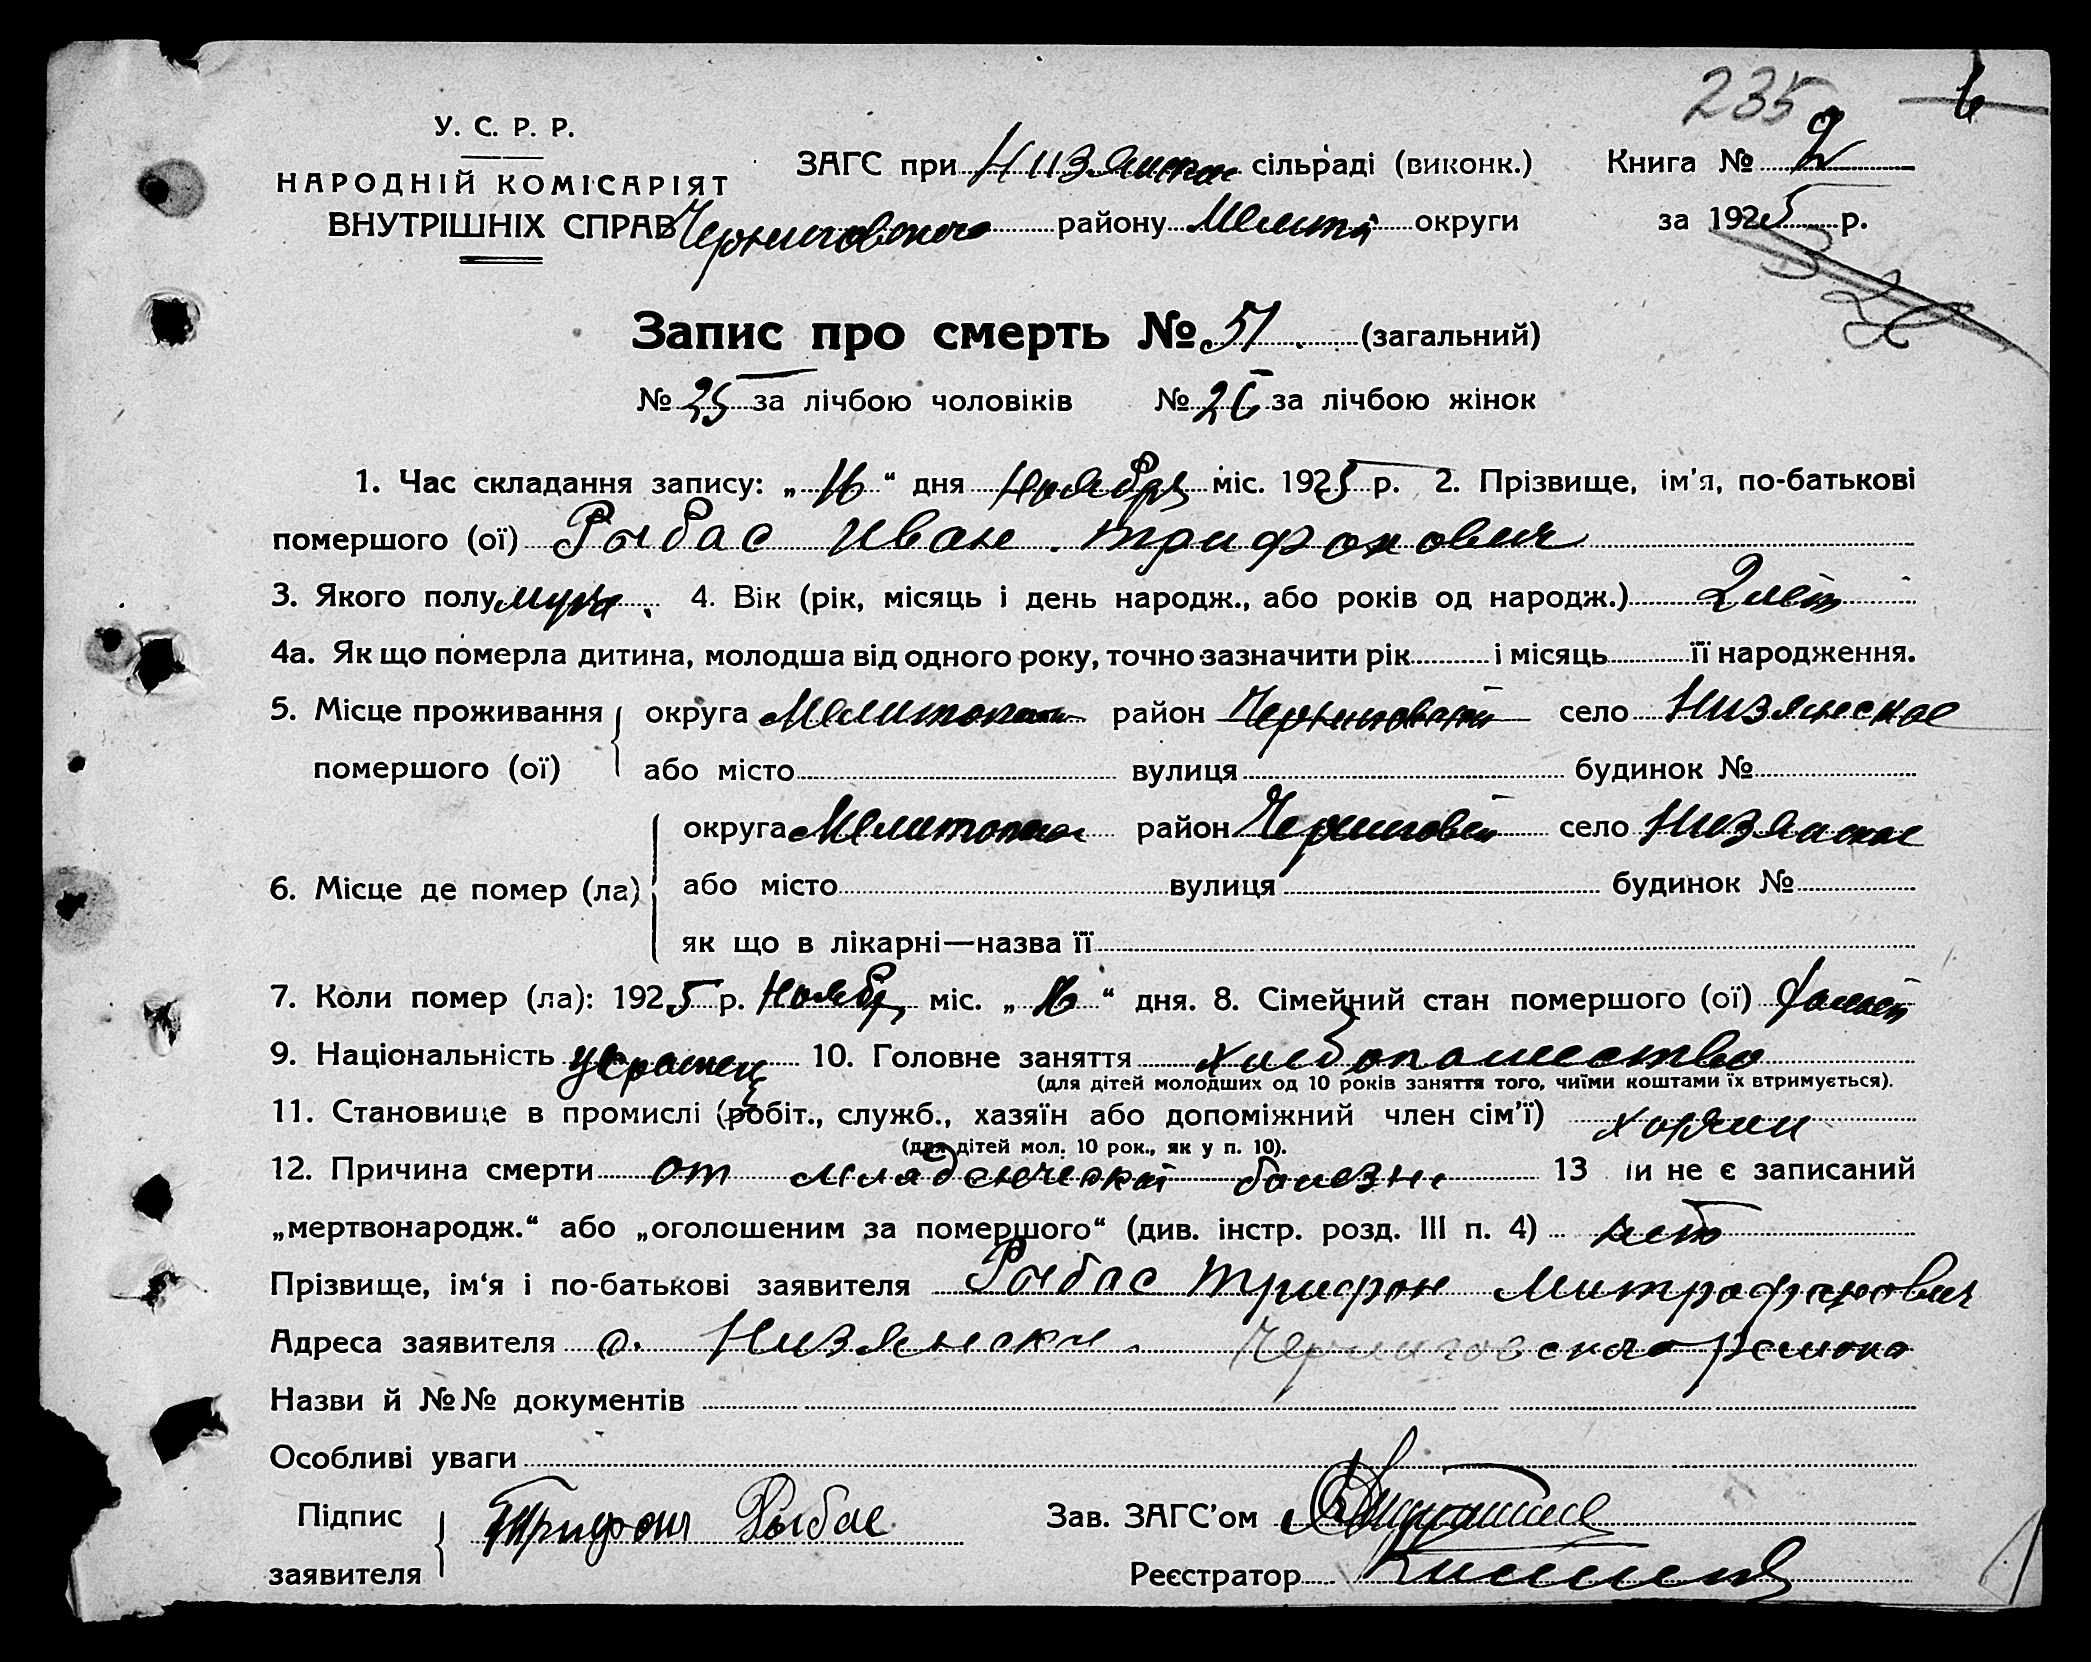 235 6
У. С. Р. Р.
НАРОДНІЙ КОМІСАРІЯТ
ВНУТРІШНІХ СПРАВ
ЗАГС при Низянской сільраді (виконк.) Книга № 2
Черниговского району Мелит. округи за 1925 р.
Запис про смерть № 51 (загальний)
№ 25 за лічбою чоловіків № 26 за лічбою жінок
1. Час складання запису: „16“ дня Ноября міс. 1925 р. 2. Прізвище, ім'я, по-батькові
помершого (ої) Рыбас Иван Трифонович
3. Якого полу муж. 4. Вік (рік, місяць і день народж., або років од народж.) 2 лет
4а. Як що померла дитина, молодша від одного року, точно зазначити рік і місяць її народження.
5. Місце проживання округа Мелитопол район Черниговский село Низянское
помершого (ої) або місто вулиця будинок №
округа Мелитопол район Черниговск село Низянское
6. Місце де помер (ла) або місто вулиця будинок №
як що в лікарні—назва її
7. Коли помер (ла): 1925 р. Ноябр міс. „16“ дня. 8. Сімейний стан помершого (ої) холост
9. Національність украинец 10. Головне заняття хлебопашество
(для дітей молодших од 10 років заняття того, чиїми коштами їх втримується).
11. Становище в промислі (робіт., служб., хазяїн або допоміжний член сім'ї)
(для дітей мол. 10 рок., як у п. 10).
12. Причина смерти от младенческой болезни 13 и не є записаний
„мертвонародж.“ або „оголошеним за помершого“ (див. інстр. розд. III п. 4) нет
Прізвище, ім'я і по-батькові заявителя Рыбас Трифон Митрофанович
Адреса заявителя с. Низянски Черниговского района
Назви й №№ документів
Особливі уваги
Підпис Трифон Рыбас Зав. ЗАГС'ом
заявителя Реєстратор